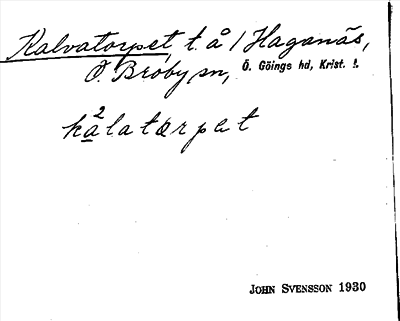 Kalvatorpet, t. å 1 Haganäs,
Ö. Broby sn, Ö. Göings hd, Krist. l.
ka²latærpet
JOHN SVENSSON 1930